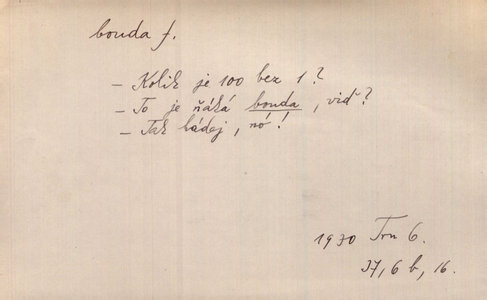 bouda f.
– Kolik je 100 bez 1?
– To je ňáká bouda, viď?
– Tak hádej, nó!
1930 Trn 6.
37, 6 b, 16.